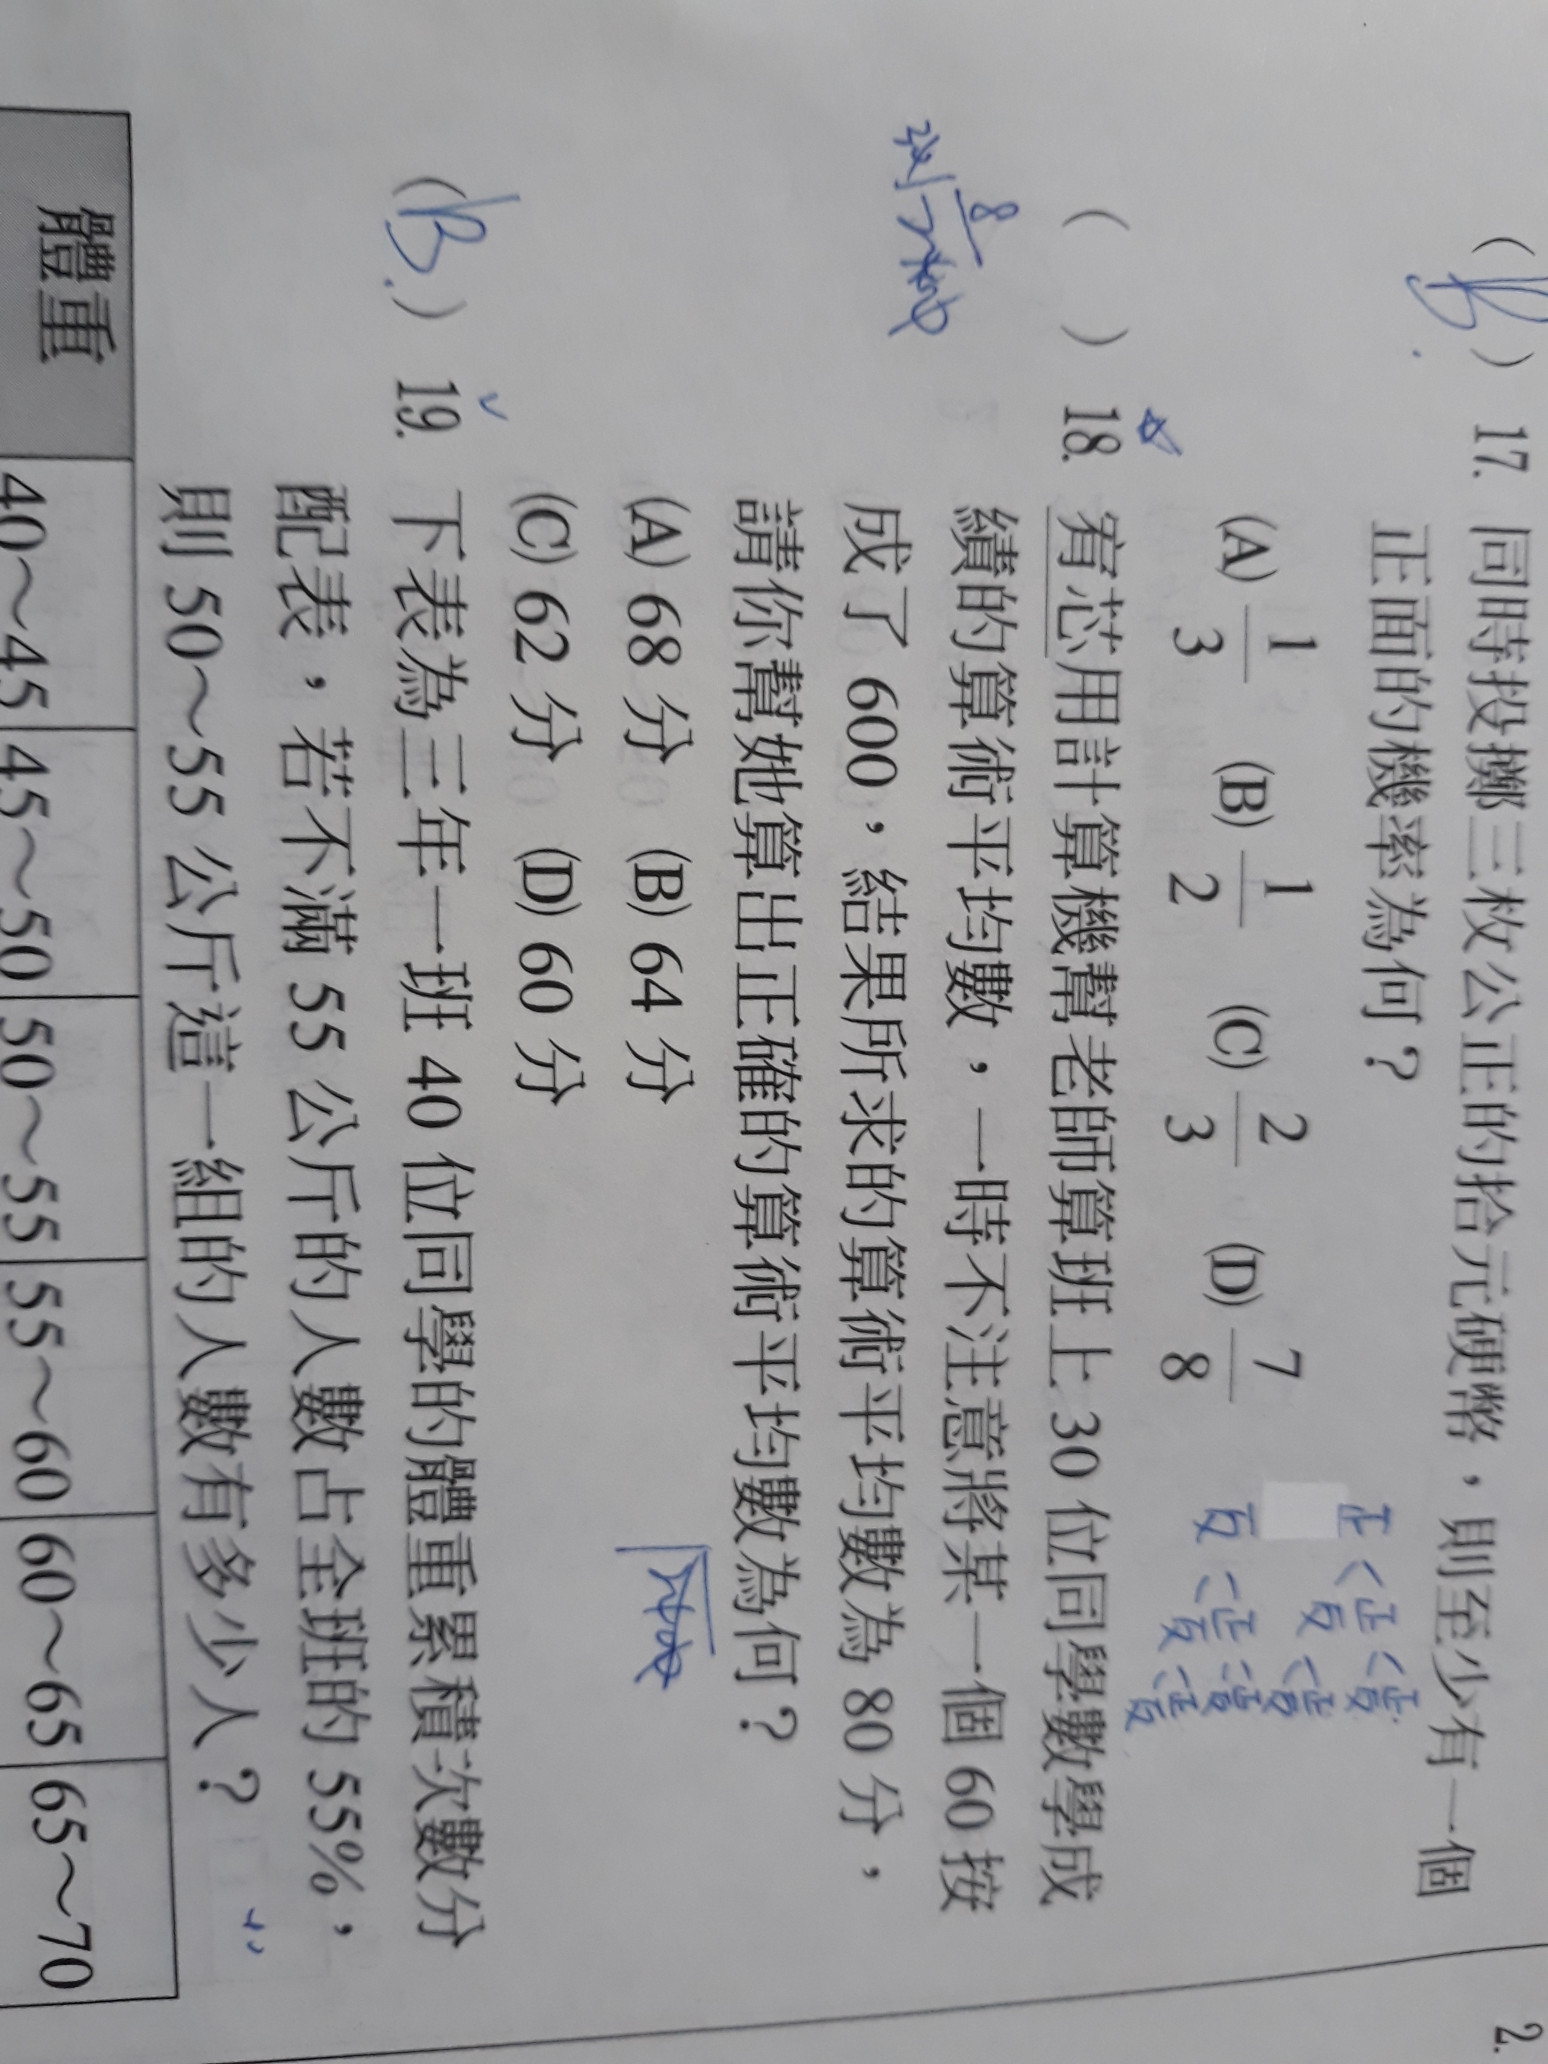 (B.) 17. 同時投擲三枚公正的拾元硬幣，則至少有一個
正面的機率為何？
(A) 1/3 (B) 1/2 (C) 2/3 (D) 7/8
正 正 正
反
反 正
反
反 正 正
反
反 正
反
( ) 18. 宥芯用計算機幫老師算班上 30 位同學數學成
績的算術平均數，一時不注意將某一個 60 按
成了 600，結果所求的算術平均數為 80 分，
請你幫她算出正確的算術平均數為何？
(A) 68 分 (B) 64 分
(C) 62 分 (D) 60 分
8
(B.) 19. 下表為三年一班 40 位同學的體重累積次數分
配表，若不滿 55 公斤的人數占全班的 55%，
則 50～55 公斤這一組的人數有多少人？
體重 40～45 45～50 50～55 55～60 60～65 65～70
2.